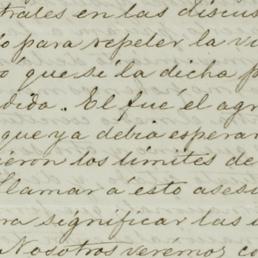 trales en las discus
o para repeler la vi
ó que si la dicha p
dida. El fué el agr
que ya debia esperar
ieron los límites de
llamar á esto asesi
ra significar las
Nosotros verémos co